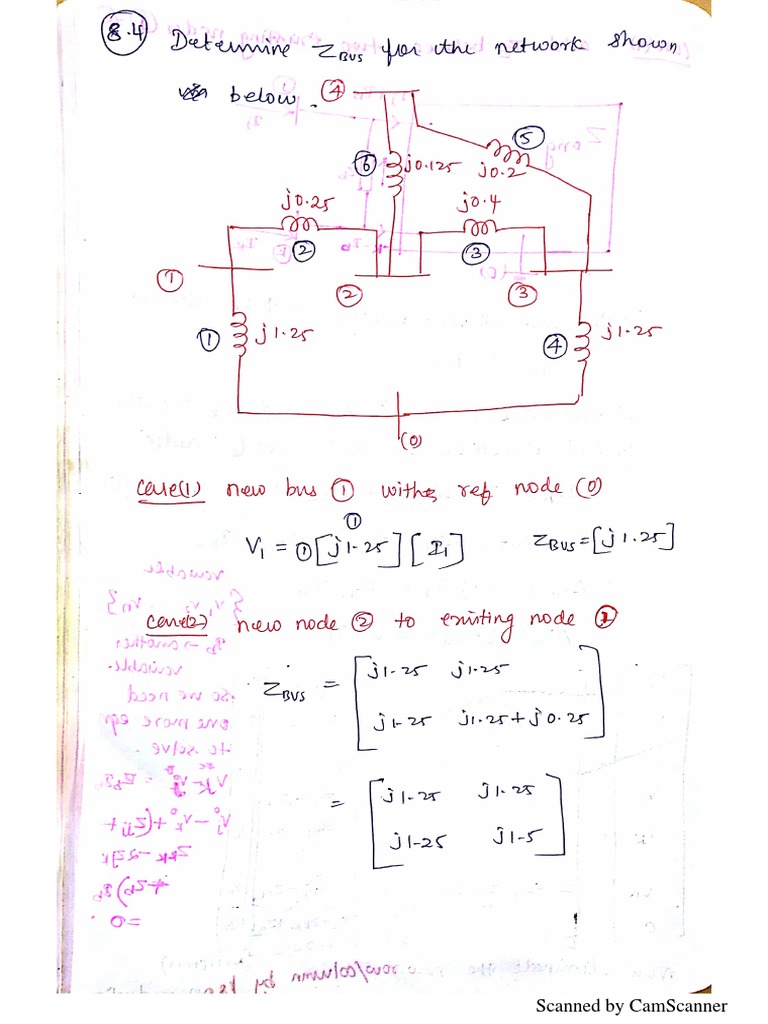 8.4 Determine ZBUS for the network shown
below.
4
5
6 j0.125 j0.2
j0.25 j0.4
2 3
1 2 3
1 j1.25 4 j1.25
(0)
case(1) new bus 1 with ref node (0)
1
V1 = 1 [j1.25] [I1] ZBUS = [j1.25]
case(2) new node 2 to existing node 1
ZBUS = [j1.25 j1.25
j1.25 j1.25+j0.25]
= [j1.25 j1.25
j1.25 j1.5]
Scanned by CamScanner